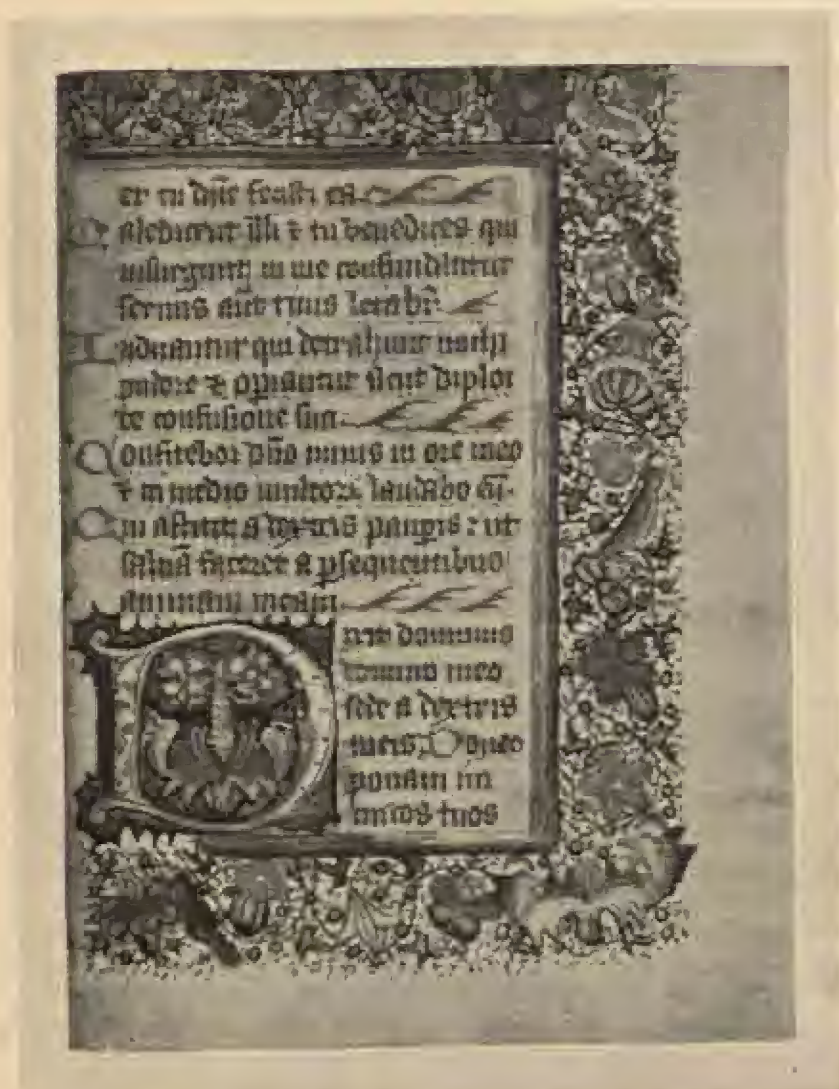 et tu dñe fecisti eā
Maledicent illi ⁊ tu benedices qui
insurgunt in me confundantur
seruus aūt tuus letabr̄
Induantur qui detrahunt michi
pudore ⁊ operiantur sicut diploi
de confusione sua
Confitebor dño nimis in ore meo
⁊ in medio multorꝝ laudabo eū
Qui astitit a dextris pauperis : ut
saluā faceret a ꝑsequentibus
animam meam
Dixit dominus
domino meo
sede a dextris
meis Donec
ponam ini
micos tuos